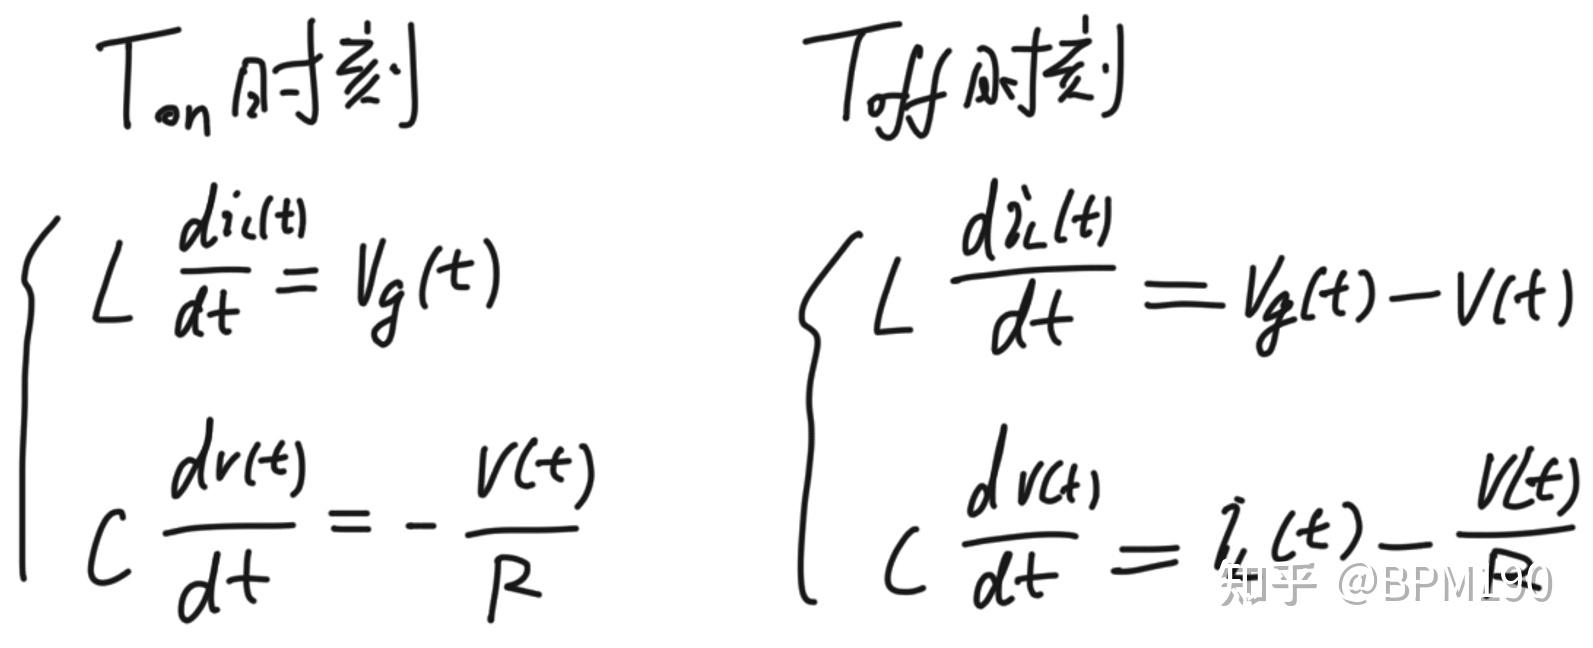 Ton时刻
L di_L(t)/dt = Vg(t)
C dv(t)/dt = - V(t)/R
Toff时刻
L di_L(t)/dt = Vg(t) - V(t)
C dv(t)/dt = i_L(t) - V(t)/R
知乎 @BPM190